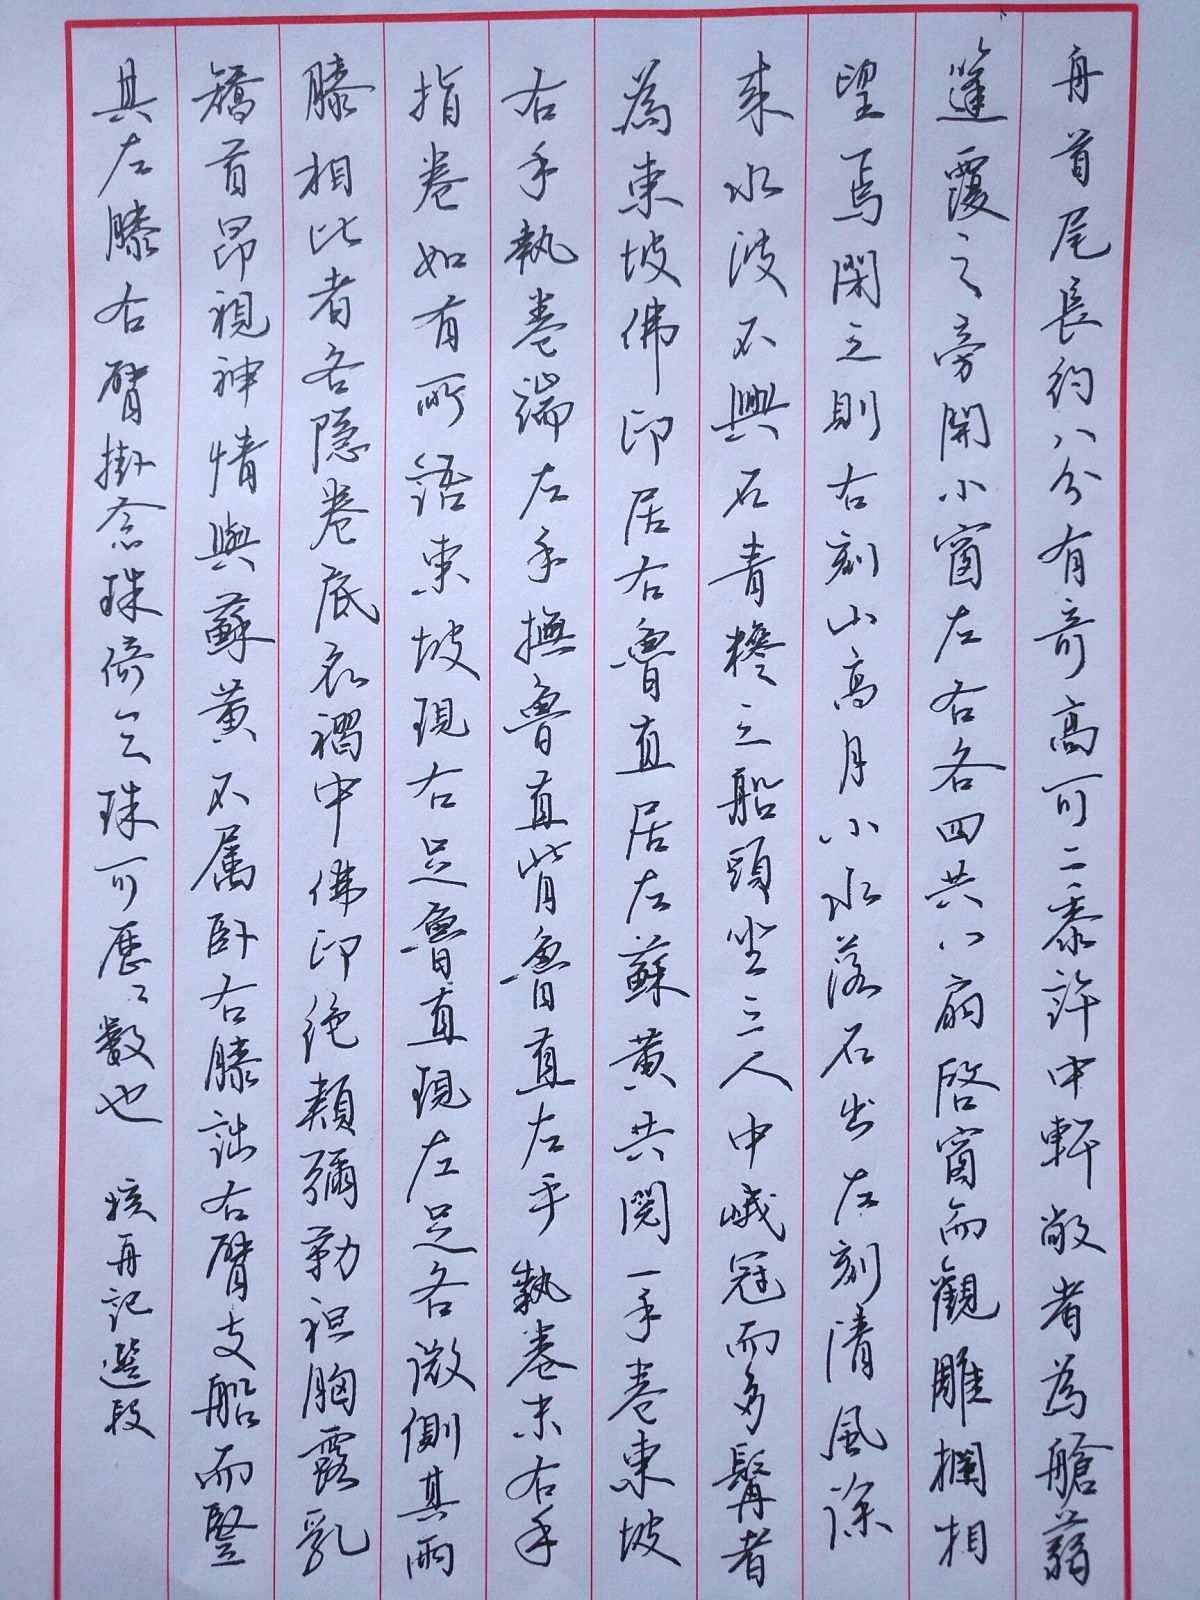 舟首尾長約八分有奇高可二黍許中軒敞者為艙蒻
篷覆之旁開小窗左右各四共八扇啓窗而觀雕欄相
望焉閉之則右刻山高月小水落石出左刻清風徐
来水波不興石青糝之船頭坐三人中峨冠而多髯者
為東坡佛印居右魯直居左蘇黃共閱一手卷東坡
右手執卷端左手撫魯直背魯直左手執卷末右手
指卷如有所語東坡現右足魯直現左足各微側其兩
膝相比者各隱卷底衣褶中佛印絶類彌勒袒胸露乳
矯首昂視神情與蘇黃不属卧右膝詘右臂支船而豎
其左膝左臂掛念珠倚之珠可歷々數也 核舟記選段